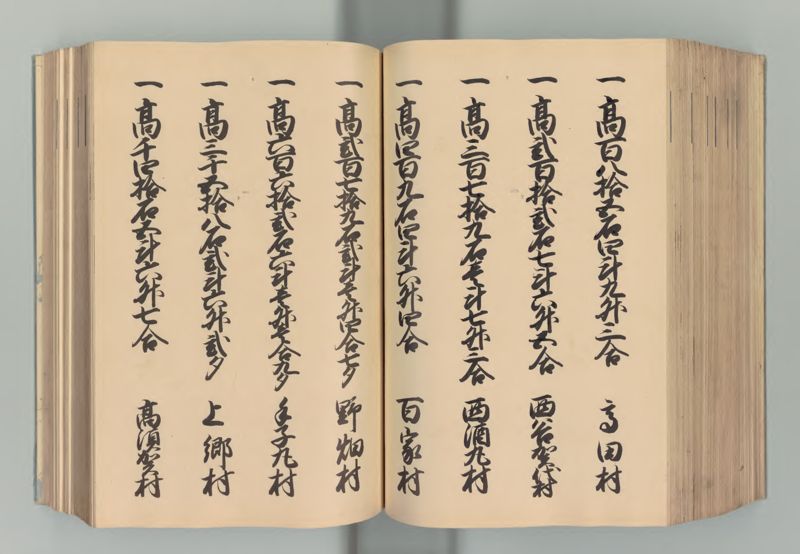 一 高百八拾五石四斗九升三合 高田村
一 高弐百拾弐石七斗六升五合 西谷村
一 高三百七拾九石壱斗七升二合 西酒丸村
一 高四百九石四斗六升四合 百家村
一 高弐百七拾九石弐斗壱升四合七夕 野畑村
一 高六百六拾弐石六斗壱升壱合九夕 手子丸村
一 高三千五拾八石弐斗六升弐夕 上郷村
一 高千四拾石五斗六升七合 高須賀村